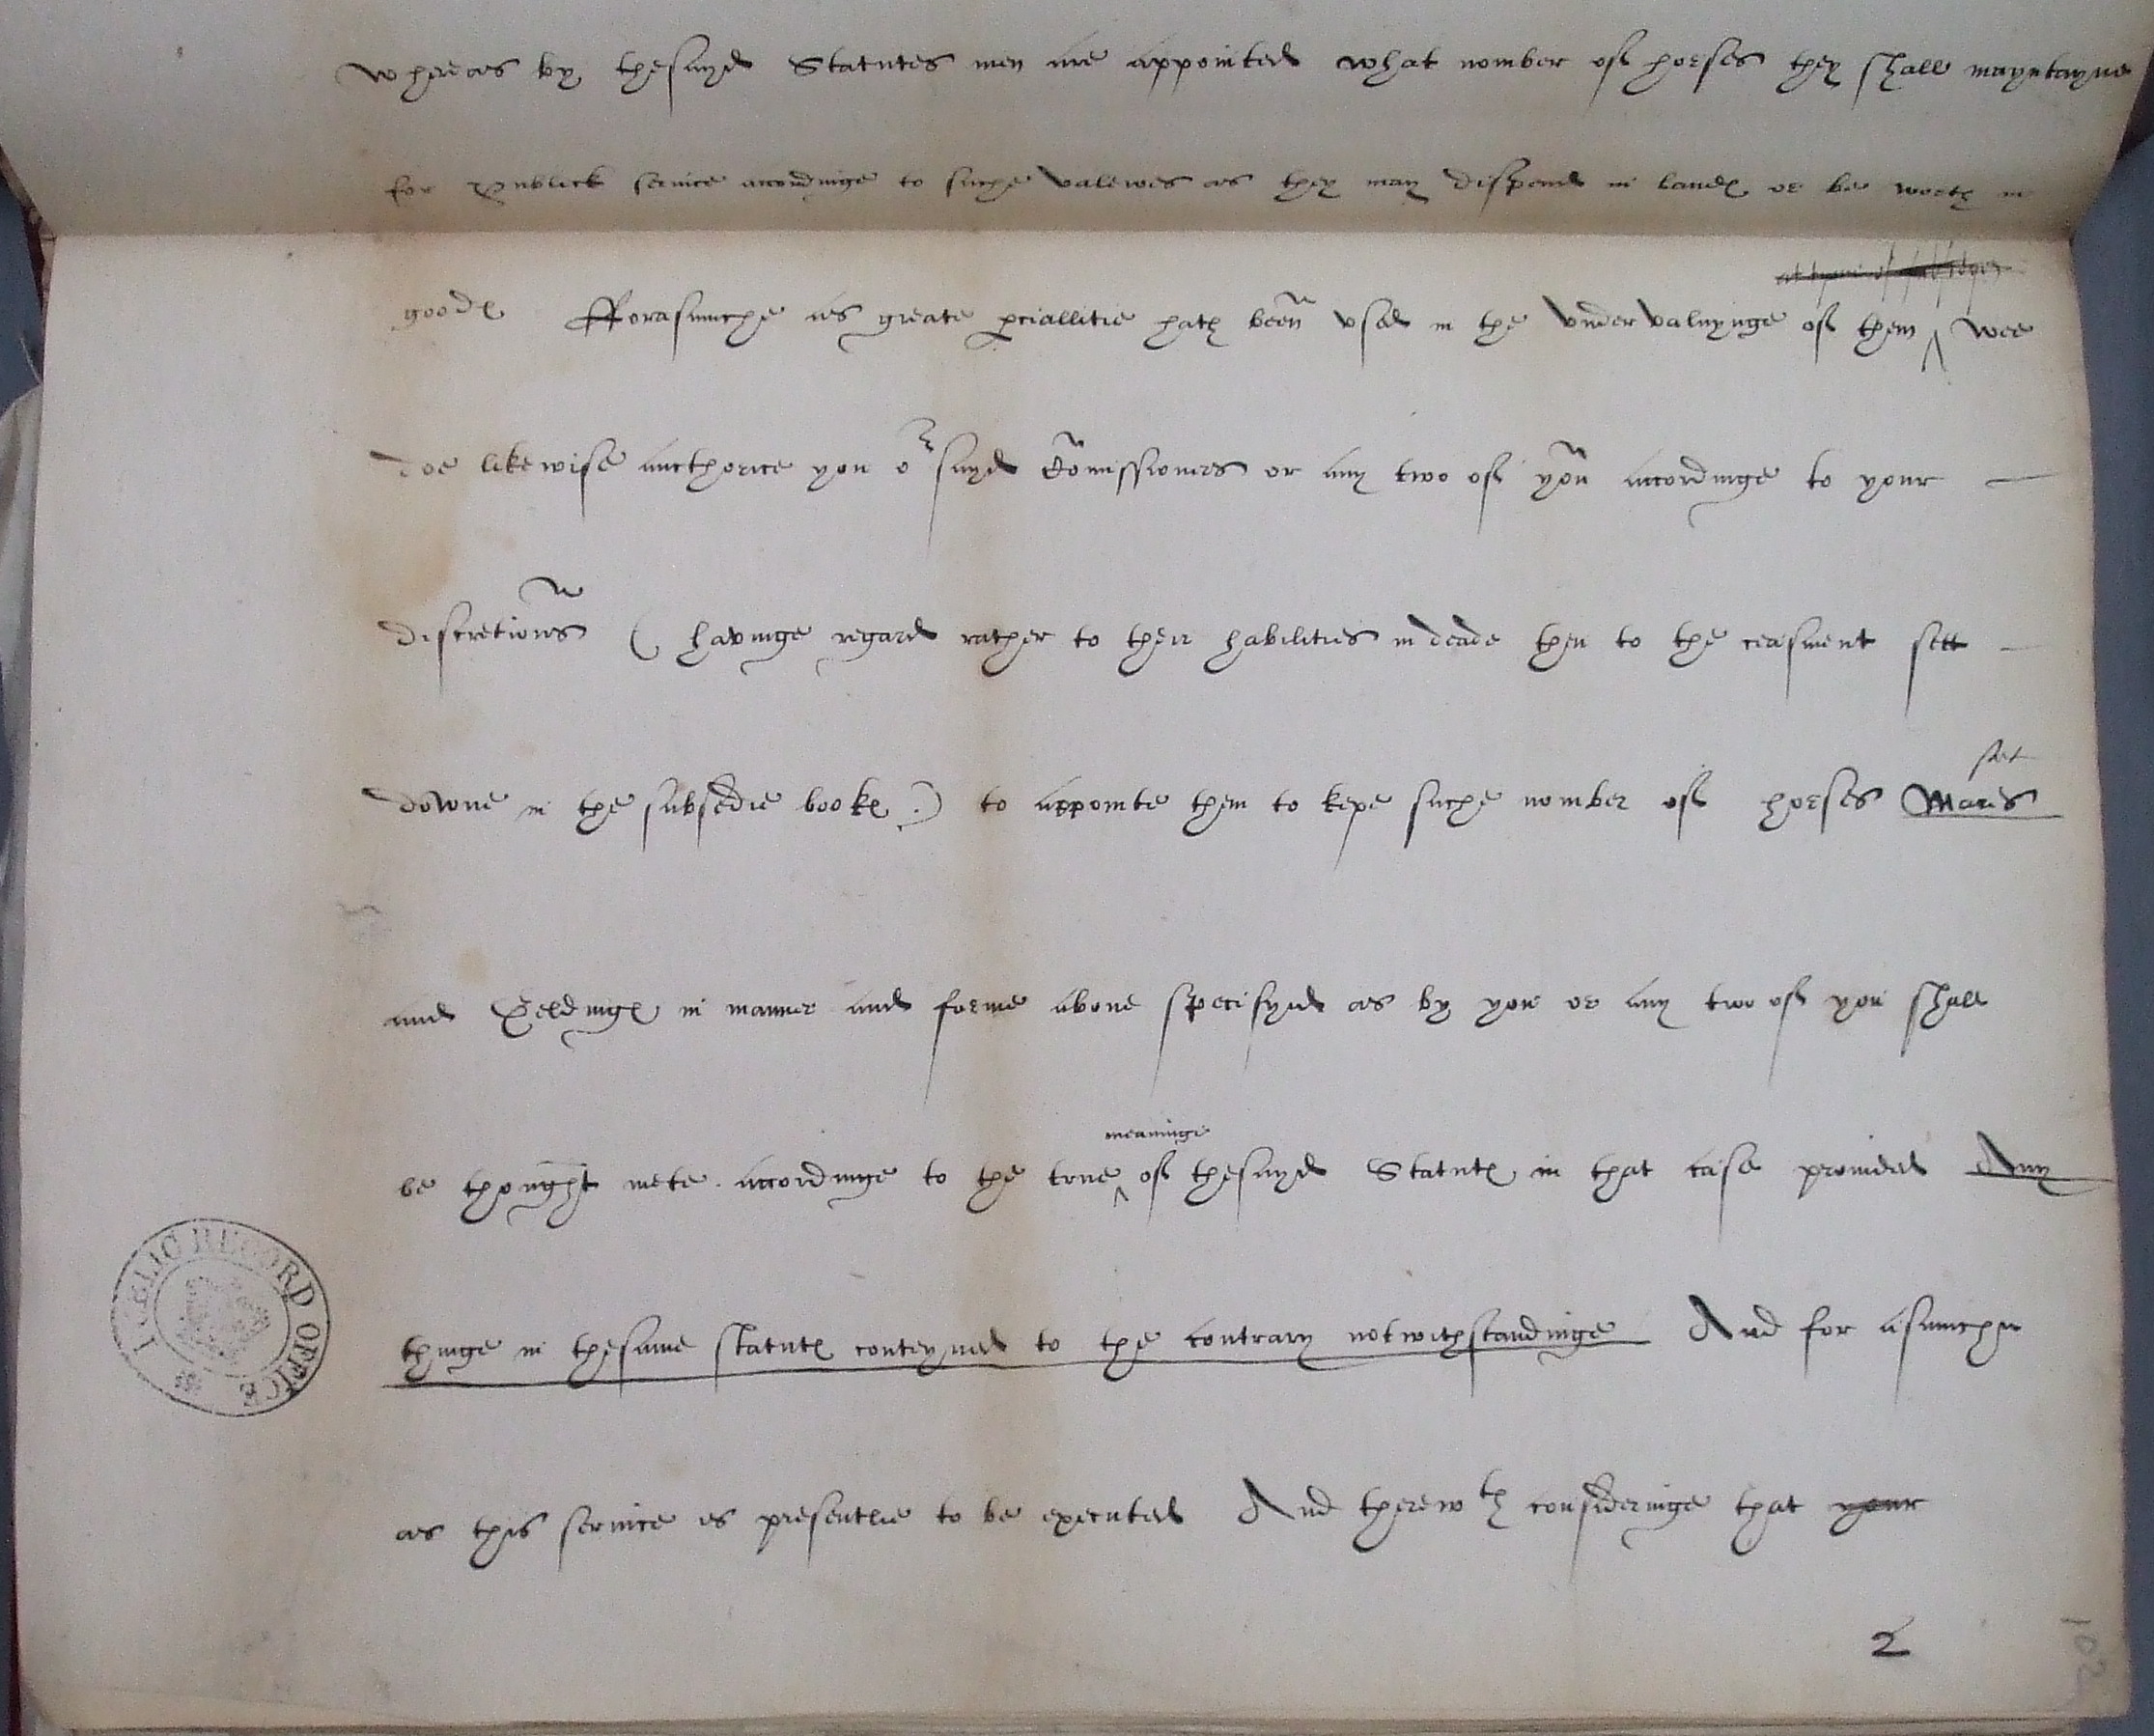 whereas by thesayd Statutes men are appointed what nomber of horses they shall mayntayne
for publick service accordinge to suche valewes as they may dispend in landꝭ or be worth in
at tyme of
goodꝭ fforasmuche as greate ꝑciallitie hath beeñ vsed in the vndervaluynge of them ^ wee
doe likewise aucthorice you oʳ sayd Com̃issioners or any two of you accordinge to your —
discretions ( havinge regard rather to their habilities in deade then to the ceasment sett —
set
downe in the subsedie bookꝭ ) to appointe them to kepe suche nomber of horses Mares
and Geldingꝭ in manner and forme above specifyed as by you or any two of you shall
meaninge
be thought mete accordinge to the true ^ of thesayd Statutꝭ in that case provided Any
thinge in thesame statutꝭ conteyned to the contrary notwithstandinge And for asmuche
as this service is presentlie to be executed And therewᵗʰ consideringe that your
2
102
PUBLIC RECORD OFFICE